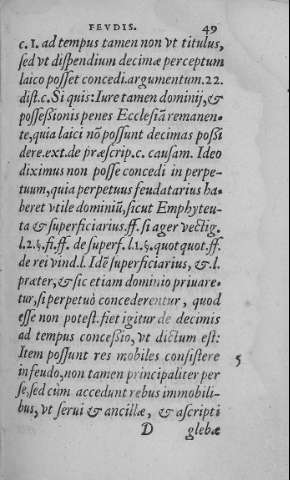 FEVDIS. 49
c. 1. ad tempus tamen non vt titulus,
sed vt dispendium decimæ perceptum
laico posset concedi. argumentum. 22.
dist. c. Si quis: Iure tamen dominij, &
possessionis penes Ecclesiā remanen-
te, quia laici nō possunt decimas possi
dere. ext. de præscrip. c. causam. Ideo
diximus non posse concedi in perpe-
tuum, quia perpetuus feudatarius ha-
beret vtile dominiū, sicut Emphyteu-
ta & superficiarius. ff. si ager vectig.
l. 2. §. fi. ff. de superf. l. 1. §. quot quot. ff.
de rei vind. l. Idē superficiarius, & .l.
præter, & sic etiam dominio priuare-
tur, si perpetuò concederentur, quod
esse non potest. fiet igitur de decimis
ad tempus concessio, vt dictum est:
Item possunt res mobiles consistere 5
in feudo, non tamen principaliter per
se, sed cùm accedunt rebus immobili-
bus, vt serui & ancillæ, & ascripti
D glebæ